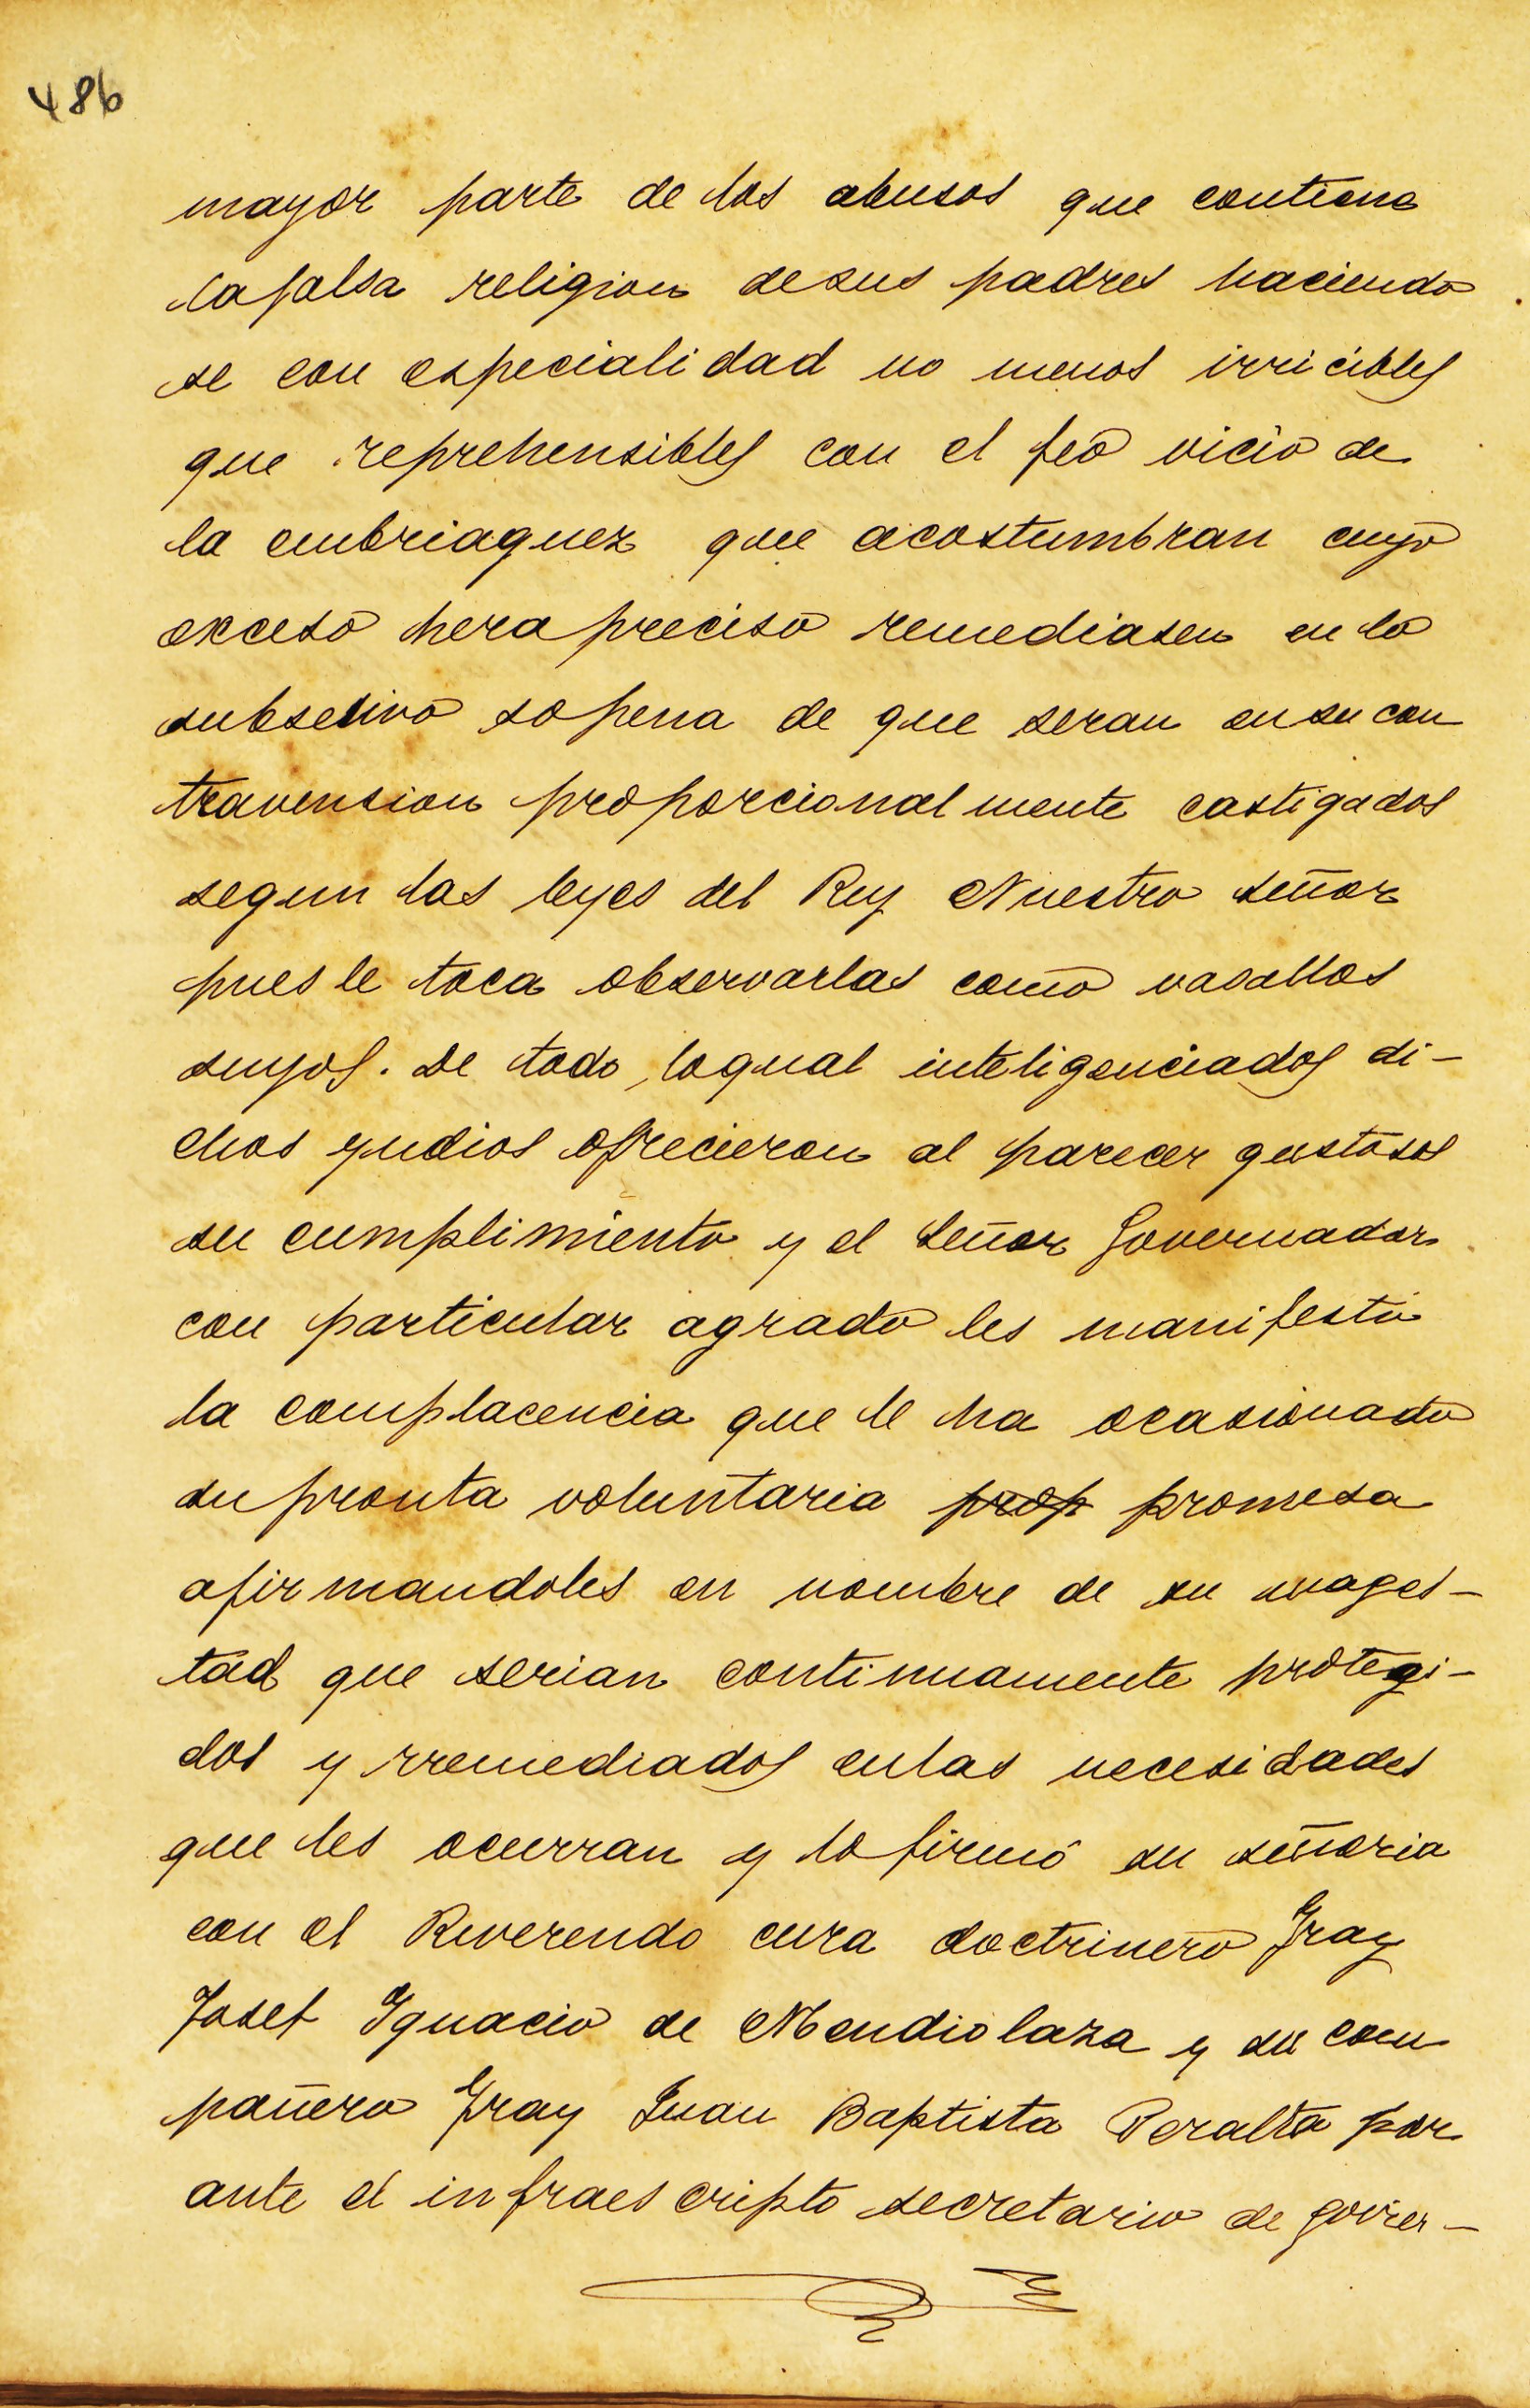 486
mayor parte de los abusos que contiene
la falsa religion de sus padres haciendo
se con especialidad no menos irricibles
que reprehensibles con el feo vicio de
la embriaguez que acostumbran cuyo
exceso hera preciso remediasen en lo
subsesivo so pena de que seran en su con
travension proporcionalmente castigados
segun las leyes del Rey Nuestro señor
pues le toca observarlas como vasallos
suyos. De todo, loqual inteligenciados di-
chos yndios ofrecieron al parecer gustosos
su cumplimiento y el señor Governador
con particular agrado les manifestó
la complacencia que le ha ocasionado
su pronta voluntaria prop promesa
afirmandoles en nombre de su mages-
tad que serian continuamente protegi-
dos y rremediados en las necesidades
que les ocurran y lo firmó su señoria
con el Reverendo cura doctrinero Fray
Josef Ygnacio de Mendiolaza y su com
pañero Fray Juan Baptista Peralta por
ante el infraescripto secretario de govier-